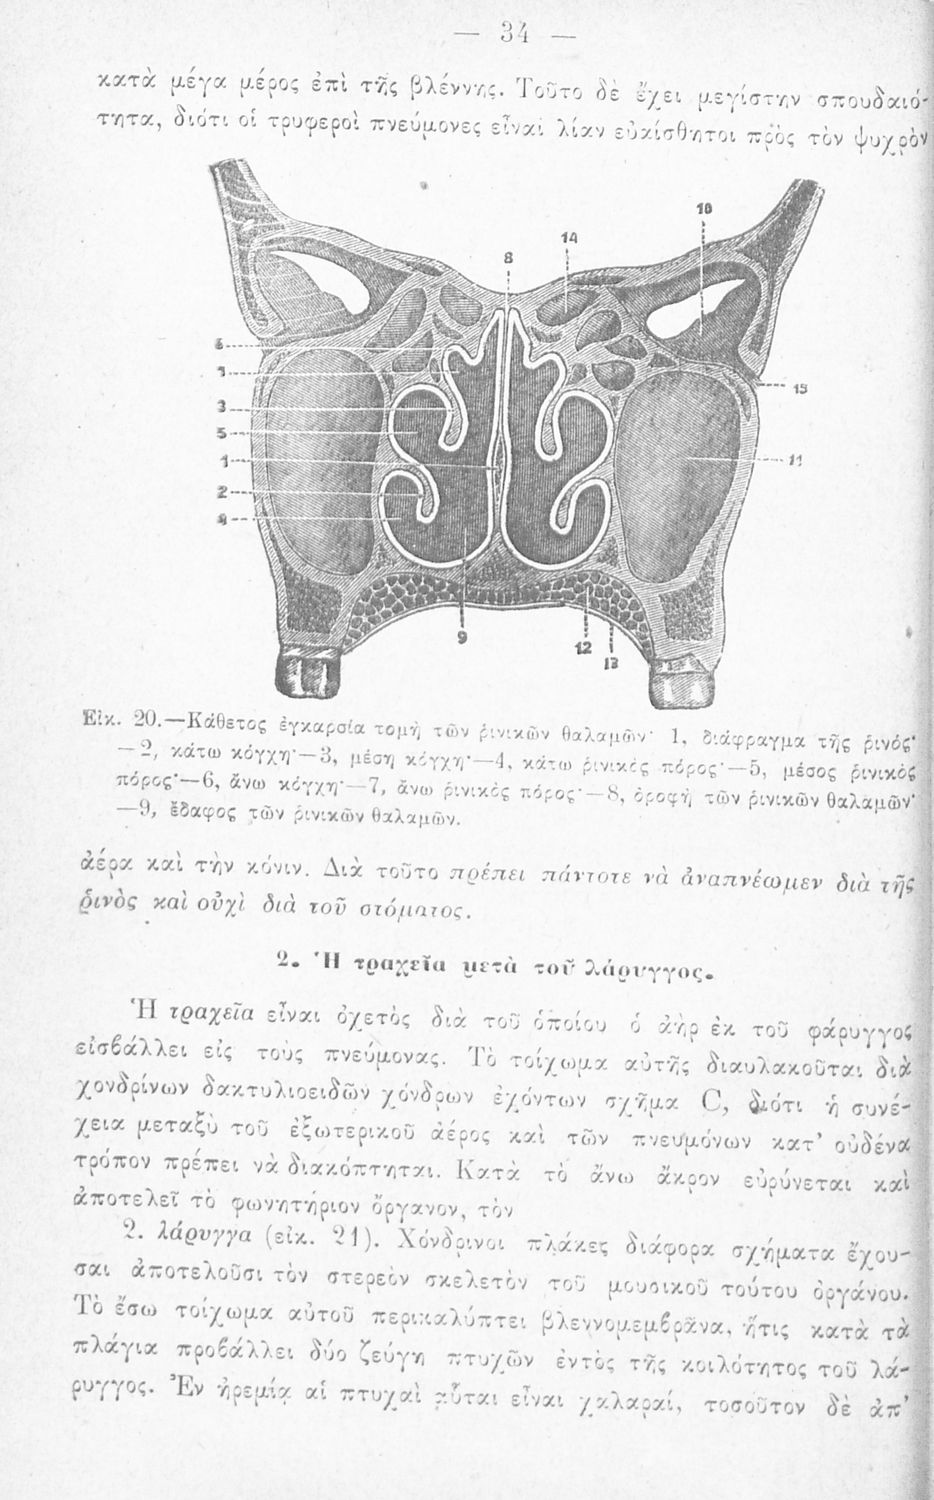 — 34 —
κατὰ μέγα μέρος ἐπὶ τῆς βλέννης. Τοῦτο δὲ ἔχει μεγίστην σπουδαιό-
τητα, διότι οἱ τρυφεροὶ πνεύμονες εἶναι λίαν εὐαίσθητοι πρὸς τὸν ψυχρὸν
10
14
8
6
7
3
5
1
2
4
15
11
9
12
13
Εἰκ. 20.—Κάθετος ἐγκαρσία τομὴ τῶν ῥινικῶν θαλαμῶν· 1, διάφραγμα τῆς ῥινός·
—2, κάτω κόγχη·—3, μέση κόγχη·—4, κάτω ῥινικὸς πόρος·—5, μέσος ῥινικὸς
πόρος·—6, ἄνω κόγχη·—7, ἄνω ῥινικὸς πόρος·—8, ὀροφὴ τῶν ῥινικῶν θαλαμῶν·
—9, ἔδαφος τῶν ῥινικῶν θαλαμῶν.
ἀέρα καὶ τὴν κόνιν. Διὰ τοῦτο πρέπει πάντοτε νὰ ἀναπνέωμεν διὰ τῆς
ῥινὸς καὶ οὐχὶ διὰ τοῦ στόματος.
2. Ἡ τραχεῖα μετὰ τοῦ λάρυγγος.
Ἡ τραχεῖα εἶναι ὀχετὸς διὰ τοῦ ὁποίου ὁ ἀὴρ ἐκ τοῦ φάρυγγος
εἰσβάλλει εἰς τοὺς πνεύμονας. Τὸ τοίχωμα αὐτῆς διαυλακοῦται διὰ
χονδρίνων δακτυλιοειδῶν χόνδρων ἐχόντων σχῆμα C, διότι ἡ συνέ-
χεια μεταξὺ τοῦ ἐξωτερικοῦ ἀέρος καὶ τῶν πνευμόνων κατ' οὐδένα
τρόπον πρέπει νὰ διακόπτηται. Κατὰ τὸ ἄνω ἄκρον εὐρύνεται καὶ
ἀποτελεῖ τὸ φωνητήριον ὄργανον, τὸν
2. λάρυγγα (εἰκ. 21). Χόνδρινοι πλάκες διάφορα σχήματα ἔχου-
σαι ἀποτελοῦσι τὸν στερεὸν σκελετὸν τοῦ μουσικοῦ τούτου ὀργάνου.
Τὸ ἔσω τοίχωμα αὐτοῦ περικαλύπτει βλεννομεμβρᾶνα, ἥτις κατὰ τὰ
πλάγια προβάλλει δύο ζεύγη πτυχῶν ἐντὸς τῆς κοιλότητος τοῦ λά-
ρυγγος. Ἐν ἠρεμίᾳ αἱ πτυχαὶ αὗται εἶναι χαλαραί, τοσοῦτον δὲ ἀπ'